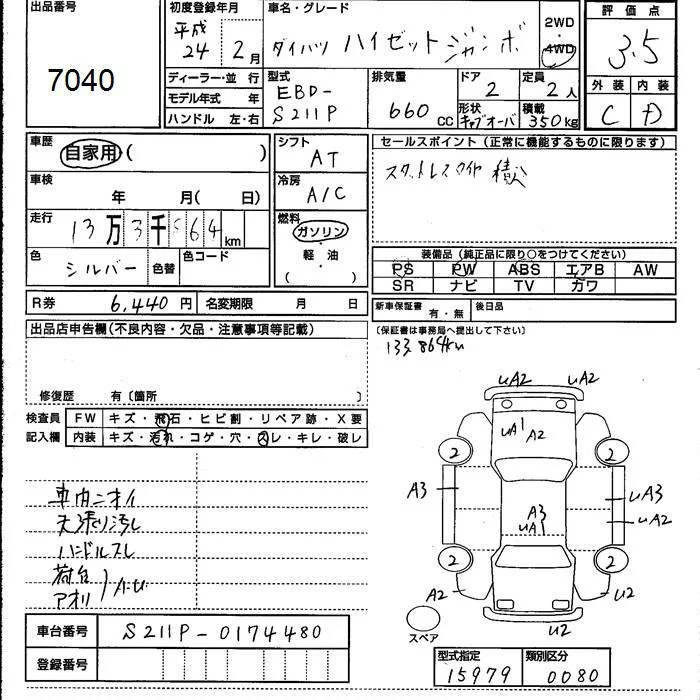 出品番号
7040
初度登録年月
平成
24年 2月
車名・グレード
ダイハツ ハイゼット ジャンボ
2WD
4WD
評価点
3.5
外装 内装
C D
ディーラー・並行
モデル年式 年
ハンドル 左・右
型式
EBD-
S211P
排気量
660 CC
ドア
2
定員
2人
形状
キャブオーバ
積載
350kg
車歴
自家用( )
シフト
AT
車検
年 月( 日)
冷房
A/C
走行
13万3千864km
燃料
ガソリン
軽・油
( )
色
シルバー
色替
色コード
セールスポイント(正常に機能するものに限ります)
スタットレスタイヤ 積込
装備品(純正品に限り○をつけてください)
PS PW ABS エアB AW
SR ナビ TV カワ
R券 6,440円
名変期限 月 日
新車保証書 有・無
後日品
(保証書は事務局へ提出して下さい)
133,864km
出品店申告欄(不良内容・欠品・注意事項等記載)
修復歴 有〔箇所 〕
検査員
記入欄
FW キズ・飛石・ヒビ割・リペア跡・X要
内装 キズ・汚れ・コゲ・穴・スレ・キレ・破レ
車内ニオイ
天張り汚レ
ハンドルスレ
荷台
アオリ
uA2 uA2
uA1 A2
2 2
A3 A3 uA3
uA1 uA2
2 2
A2 U2
U2
スペア
車台番号 S211P-0174480
登録番号
型式指定 類別区分
15979 0080